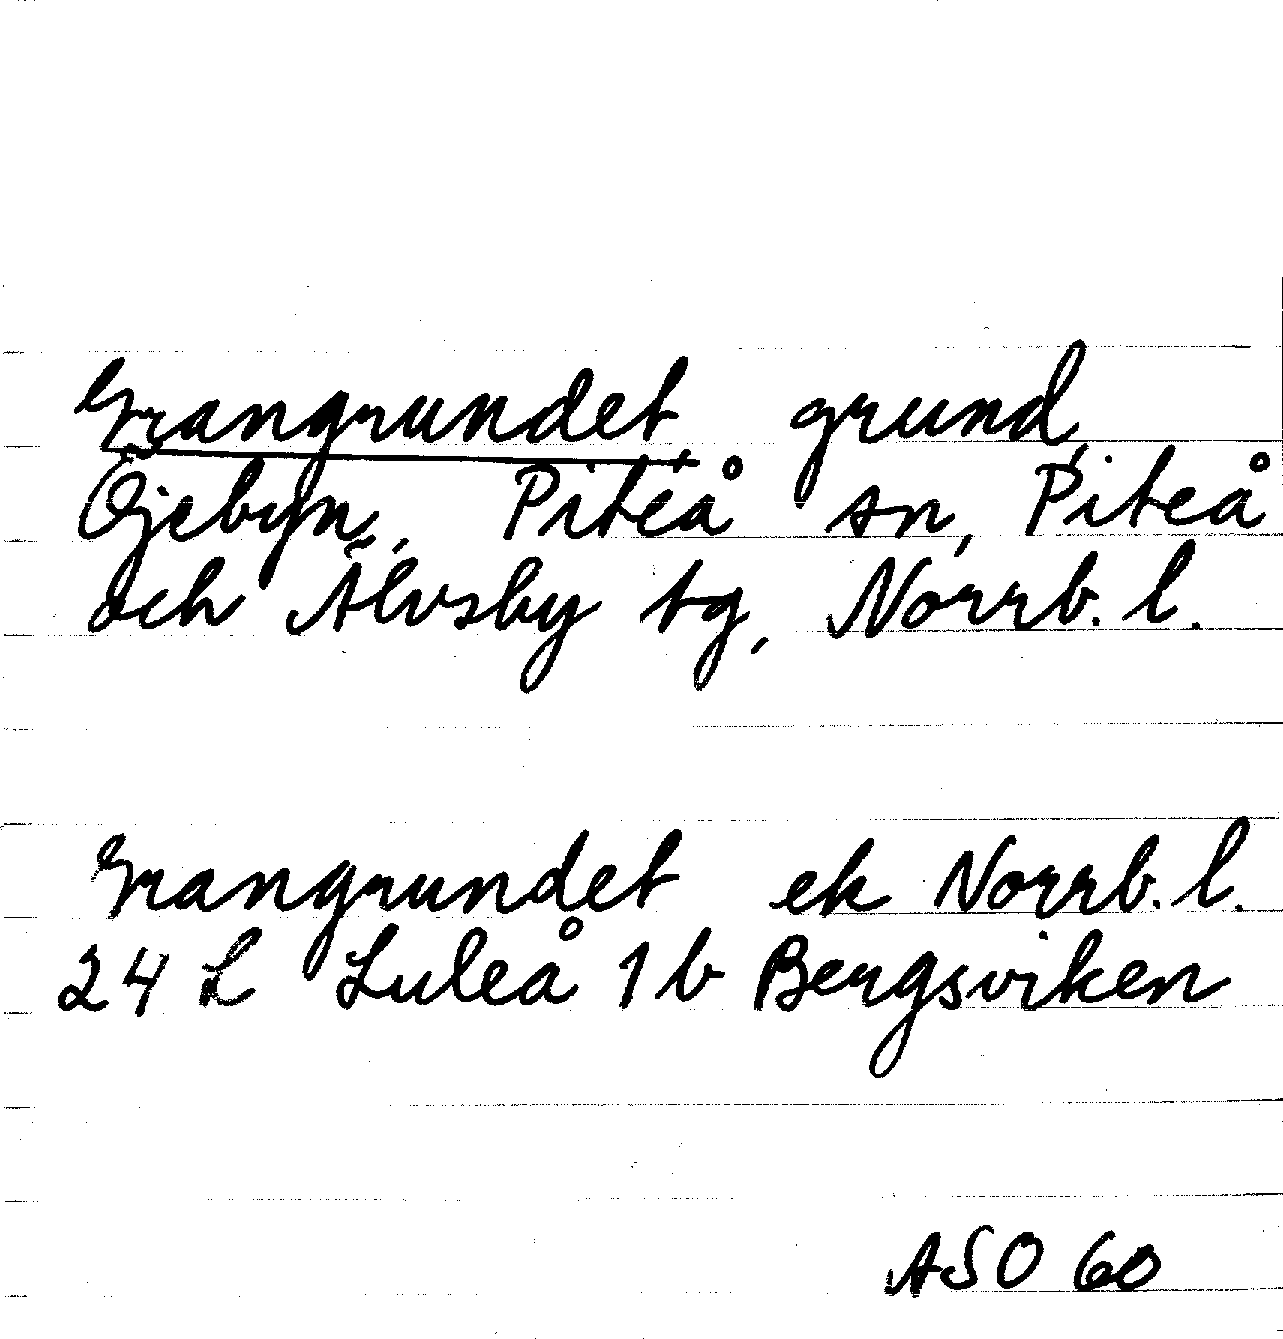 Grangrundet, grund,
Öjebyn, Piteå sn, Piteå
och Älvsby tg, Norrb. l.
Grangrundet ek Norrb. l.
24 L Luleå 1 b Bergsviken
ASO 60